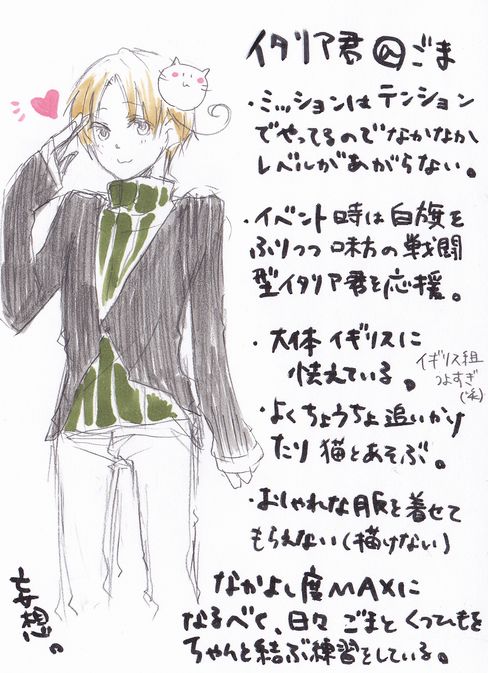 イタリア君@ごま
・ミッションはテンション
でやってるのでなかなか
レベルがあがらない。
・イベント時は白旗を
ふりつつ味方の戦闘
型イタリア君を応援。
・大体イギリスに
怯えている。
イギリス組
つよすぎ
(笑)
・よくちょうちょ追いかけ
たり猫とあそぶ。
・おしゃれな服を着せて
もらえない(描けない)
なかよし度MAXに
なるべく、日々ごまとくつひもを
ちゃんと結ぶ練習をしている。
妄想。